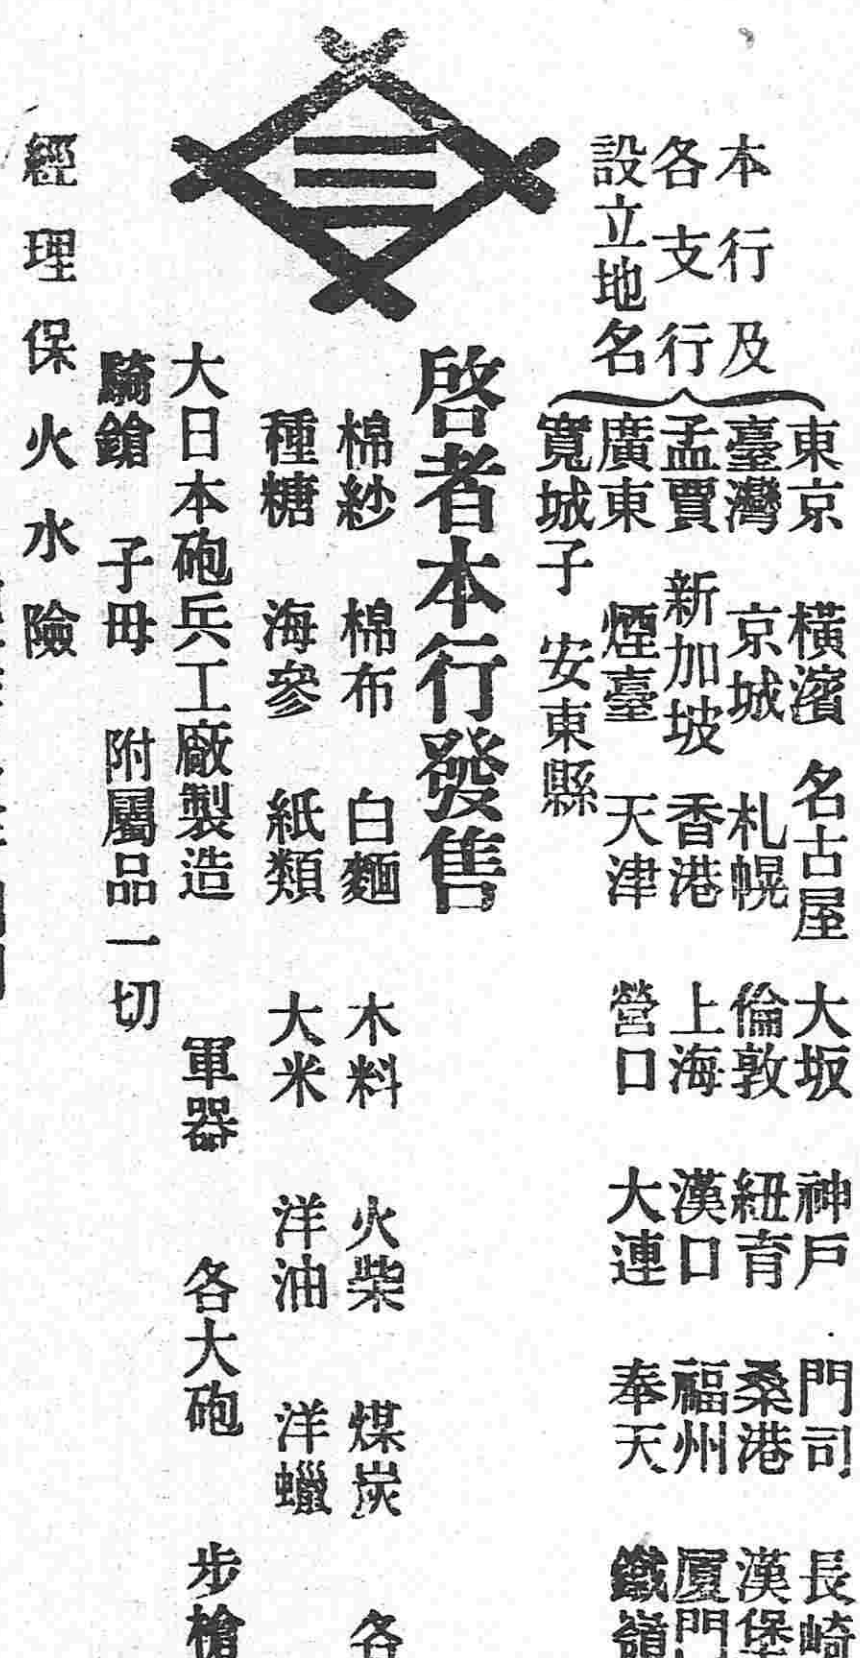 本行及
各支行
設立地名
東京 橫濱 名古屋 大坂 神戶 門司 長崎
臺灣 京城 札幌 倫敦 紐育 桑港 漢堡
孟買 新加坡 香港 上海 漢口 福州 廈門
廣東 煙臺 天津 營口 大連 奉天 鐵嶺
寬城子 安東縣
啓者本行發售
棉紗 棉布 白麵 木料 火柴 煤炭 各
種糖 海參 紙類 大米 洋油 洋蠟
大日本砲兵工廠製造 軍器 各大砲 步槍
騎鎗 子母 附屬品一切
經理保火水險